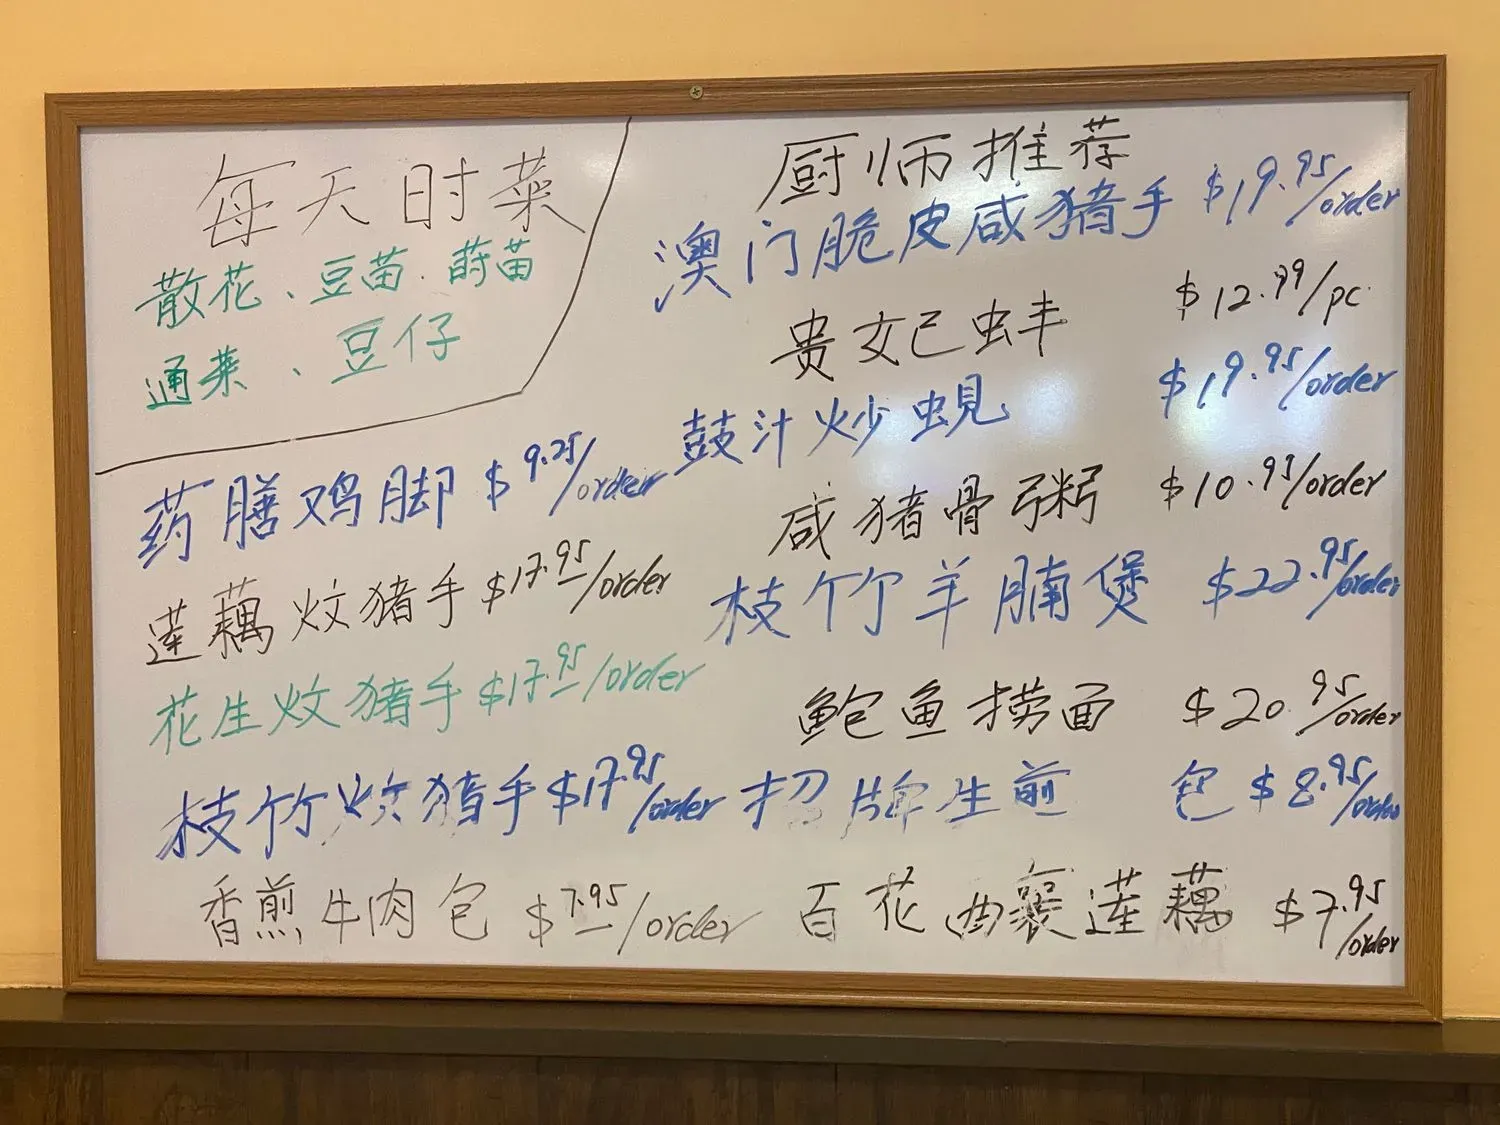 每天时菜
散花、豆苗、莳苗
通菜、豆仔
药膳鸡脚 $9.25/order
莲藕炆猪手 $17.95/order
花生炆猪手 $17.95/order
枝竹炆猪手 $17.95/order
香煎牛肉包 $7.95/order
厨师推荐
澳门脆皮咸猪手 $19.95/order
贵妃蚌 $12.99/pc
鼓汁炒蚬 $19.95/order
咸猪骨粥 $10.95/order
枝竹羊腩煲 $22.95/order
鲍鱼捞面 $20.95/order
招牌生前 包 $8.95/order
百花 莲藕 $7.95/order